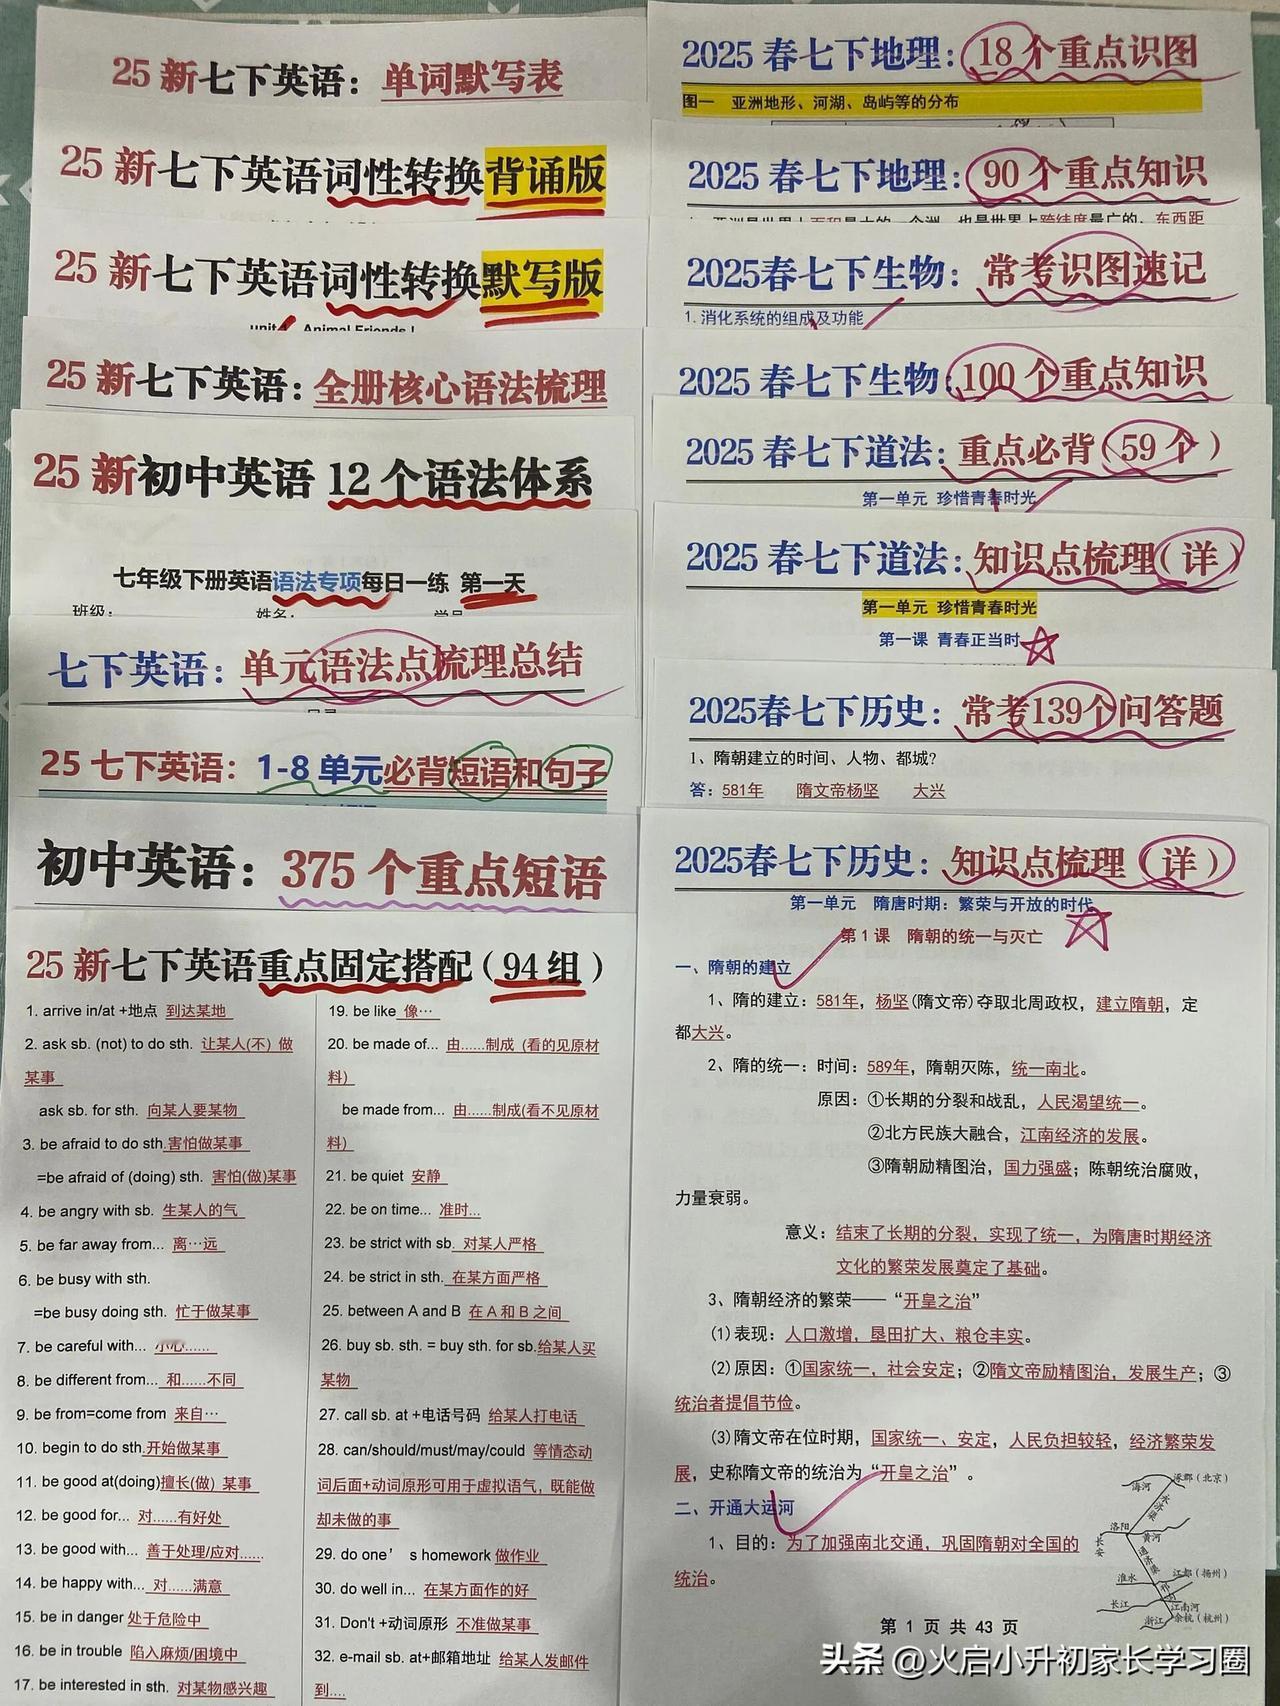 25 新七下英语：单词默写表
25 新七下英语词性转换背诵版
25 新七下英语词性转换默写版
25 新七下英语：全册核心语法梳理
25 新初中英语 12 个语法体系
七年级下册英语语法专项每日一练 第一天
班级： 姓名：
七下英语：单元语法点梳理总结
25 七下英语：1-8 单元必背短语和句子
初中英语：375 个重点短语
25 新七下英语重点固定搭配（94 组）
1. arrive in/at +地点 到达某地
2. ask sb. (not) to do sth. 让某人(不) 做
某事
ask sb. for sth. 向某人要某物
3. be afraid to do sth.害怕做某事
=be afraid of (doing) sth. 害怕(做)某事
4. be angry with sb. 生某人的气
5. be far away from... 离…远
6. be busy with sth.
=be busy doing sth. 忙于做某事
7. be careful with... 小心……
8. be different from... 和……不同
9. be from=come from 来自…
10. begin to do sth.开始做某事
11. be good at(doing)擅长(做) 某事
12. be good for... 对……有好处
13. be good with... 善于处理/应对……
14. be happy with... 对……满意
15. be in danger 处于危险中
16. be in trouble 陷入麻烦/困境中
17. be interested in sth. 对某物感兴趣
19. be like 像…
20. be made of... 由……制成 (看的见原材
料)
be made from... 由……制成(看不见原材
料)
21. be quiet 安静
22. be on time... 准时...
23. be strict with sb. 对某人严格
24. be strict in sth. 在某方面严格
25. between A and B 在 A 和 B 之间
26. buy sb. sth. = buy sth. for sb.给某人买
某物
27. call sb. at +电话号码 给某人打电话
28. can/should/must/may/could 等情态动
词后面+动词原形可用于虚拟语气，既能做
却未做的事
29. do one' s homework 做作业
30. do well in... 在某方面作的好
31. Don't +动词原形 不准做某事
32. e-mail sb. at+邮箱地址 给某人发邮件
到....
2025 春七下地理：18个重点识图
图一 亚洲地形、河湖、岛屿等的分布
2025 春七下地理：90 个重点知识
2025春七下生物：常考识图速记
1.消化系统的组成及功能
2025 春七下生物：100 个重点知识
2025 春七下道法：重点必背（59 个）
第一单元 珍惜青春时光
2025 春七下道法：知识点梳理（详）
第一单元 珍惜青春时光
第一课 青春正当时
2025春七下历史：常考139个问答题
1、隋朝建立的时间、人物、都城?
答：581年 隋文帝杨坚 大兴
2025春七下历史：知识点梳理（详）
第一单元 隋唐时期：繁荣与开放的时代
第 1 课 隋朝的统一与灭亡
一、隋朝的建立
1、隋的建立：581年，杨坚(隋文帝)夺取北周政权，建立隋朝，定
都大兴。
2、隋的统一：时间：589年，隋朝灭陈，统一南北。
原因：①长期的分裂和战乱，人民渴望统一。
②北方民族大融合，江南经济的发展。
③隋朝励精图治，国力强盛；陈朝统治腐败，
力量衰弱。
意义：结束了长期的分裂，实现了统一，为隋唐时期经济
文化的繁荣发展奠定了基础。
3、隋朝经济的繁荣——“开皇之治”
(1)表现：人口激增，垦田扩大、粮仓丰实。
(2)原因：①国家统一，社会安定；②隋文帝励精图治，发展生产；③
统治者提倡节俭。
(3)隋文帝在位时期，国家统一、安定，人民负担较轻，经济繁荣发
展，史称隋文帝的统治为“开皇之治”。
二、开通大运河
1、目的：为了加强南北交通，巩固隋朝对全国的
统治。
涿郡（北京）
海河
永济渠
洛阳
黄河
长安
通济渠
淮水
江都（扬州）
长江
江南河
余杭（杭州）
浙江
第 1 页 共 43 页
头条 @火启小升初家长学习圈